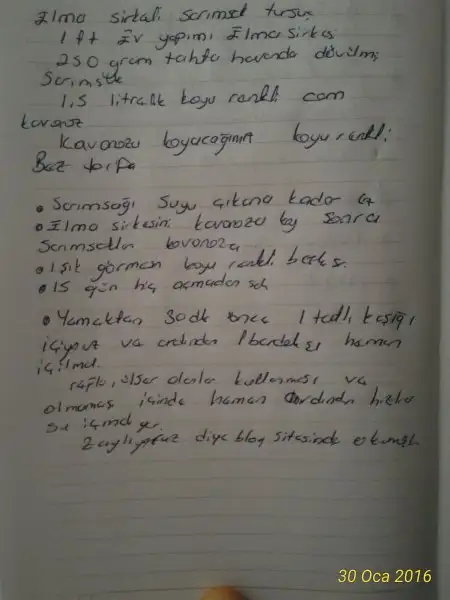 Elma sirkeli sarımsak turşusu
1 lt Ev yapımı Elma Sirkesi
250 gram tahta havanda dövülmüş
Sarımsak
1,5 litralik koyu renkli cam
kavanoz
Kavanozu koyacağınız koyu renkli
Bez torba
• Sarımsağı Suyu çıkana kadar
• Elma sirkesini kavanoza koy Sonra
Sarımsakları kavanoza
• Işık görmesin koyu renkli
• 15 gün hiç açmadan
• Yemekten 30 dk önce 1 tatlı kaşığı
içiyoruz ve ardından 1 bardak su hemen
içilmeli.
ülser olanlar kullanması ve
içinde hemen ardından
Su
Zayıflıyoruz diye blog sitesinde
30 Oca 2016